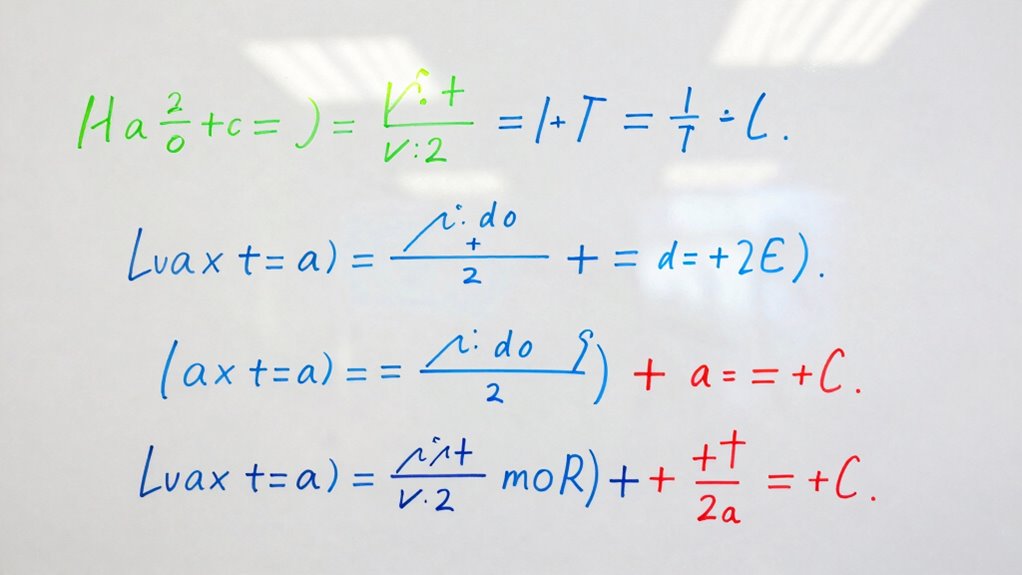 Ha 2/0 +c = ) = V:+/V:2 = 1+T = 1/T ÷ C.
Lvax t=a) = i:do+/2 + = d=+2E).
(ax t=a) = = i:do/2 ) + a= =+C.
Lvax t=a) = +/V.2 moR)+ + ++/2a = +C.